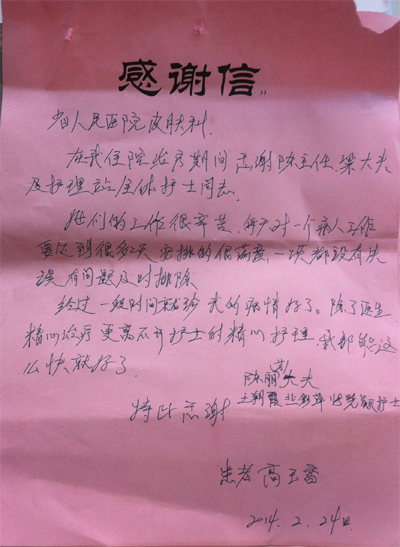 感谢信
省人民医院皮肤科
在我住院治疗期间 感谢陈主任 梁大夫
及护理站全体护士同志.
她们的工作很辛苦. 每天对一个病人工作
要达到很多次 安排的很 一项都没有失
误 有问题及时排除
经过一段时间就诊 我的病情好了。除了医生
精心治疗 更离不开护士的精心护理. 我都能这
么快就好了
陈丽 大夫
王 霞 护士
特此感谢
患者 高玉
2014. 2. 24日